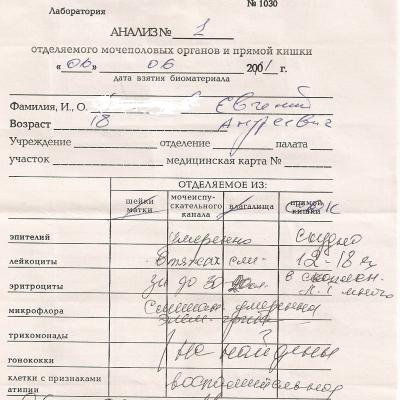 Лаборатория № 1030
АНАЛИЗ № 1
отделяемого мочеполовых органов и прямой кишки
« 06 » 06 2001 г.
дата взятия биоматериала
Фамилия, И., О. Евгений
Возраст 18 Андреевич
Учреждение отделение палата
участок медицинская карта №
ОТДЕЛЯЕМОЕ ИЗ:
шейки матки мочеиспускательного канала влагалища прямой кишки сок
эпителий умеренно скудно
лейкоциты в тяжах сли- 12-18 в
эритроциты зи до 30 в скоплен.
много
микрофлора смешан. умеренная
трихомонады
гонококки не найдены
клетки с признаками атипии воспалительная